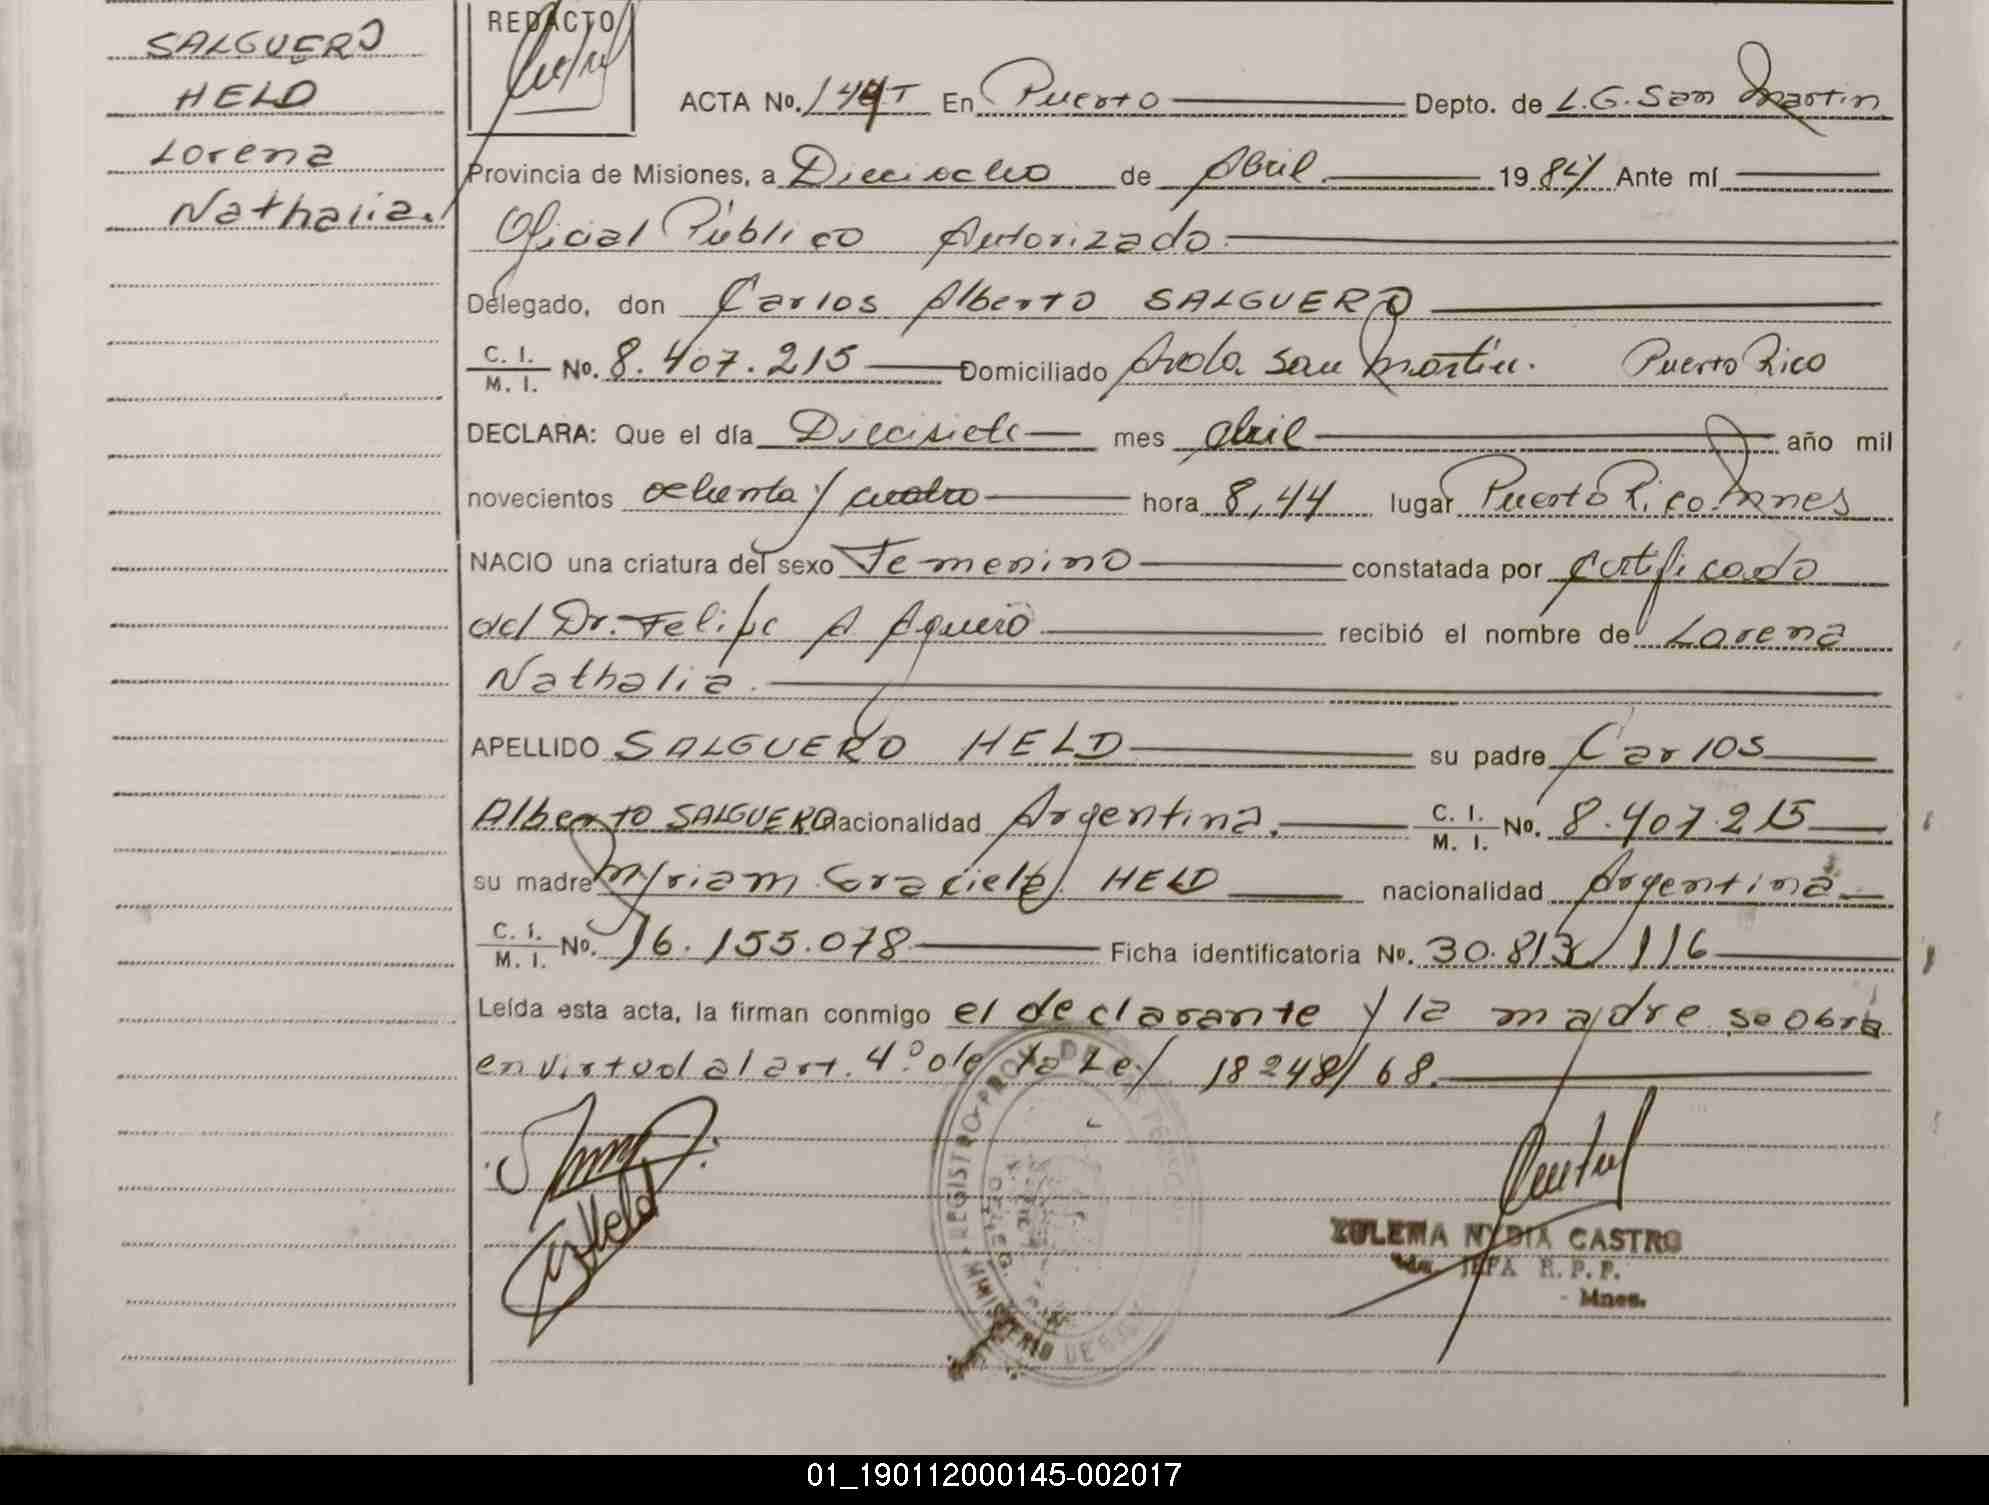 SALGUERO
HELD
Lorena
Nathalia.
REDACTO
ACTA No. 144T En Puerto Depto. de L.G. San Martin
Provincia de Misiones, a Dieciocho de Abril 1984 Ante mí
Oficial Público Autorizado.
Delegado, don Carlos Alberto SALGUERO
C. I. / M. I. No. 8.407.215 Domiciliado Avda. San Martín. Puerto Rico
DECLARA: Que el día Diecisiete mes abril año mil
novecientos ochenta y cuatro hora 8,44 lugar Puerto Rico. Mnes
NACIO una criatura del sexo Femenino constatada por certificado
del Dr. Felipe A Aguero recibió el nombre de Lorena
Nathalia.
APELLIDO SALGUERO HELD su padre Carlos
Alberto SALGUERO nacionalidad Argentina. C. I. / M. I. No. 8.407.215
su madre Myriam Graciela HELD nacionalidad Argentina
C. I. / M. I. No. 16.155.078 Ficha identificatoria No. 30.813/116
Leída esta acta, la firman conmigo el declarante y la madre se obra
en virtud al art. 4º de la Ley 18248/68.
Held
REGISTRO PROV. DE
MINISTERIO DE
ZULEMA NYDIA CASTRO
JEFA R. P. P.
- Mnes.
01_190112000145-002017